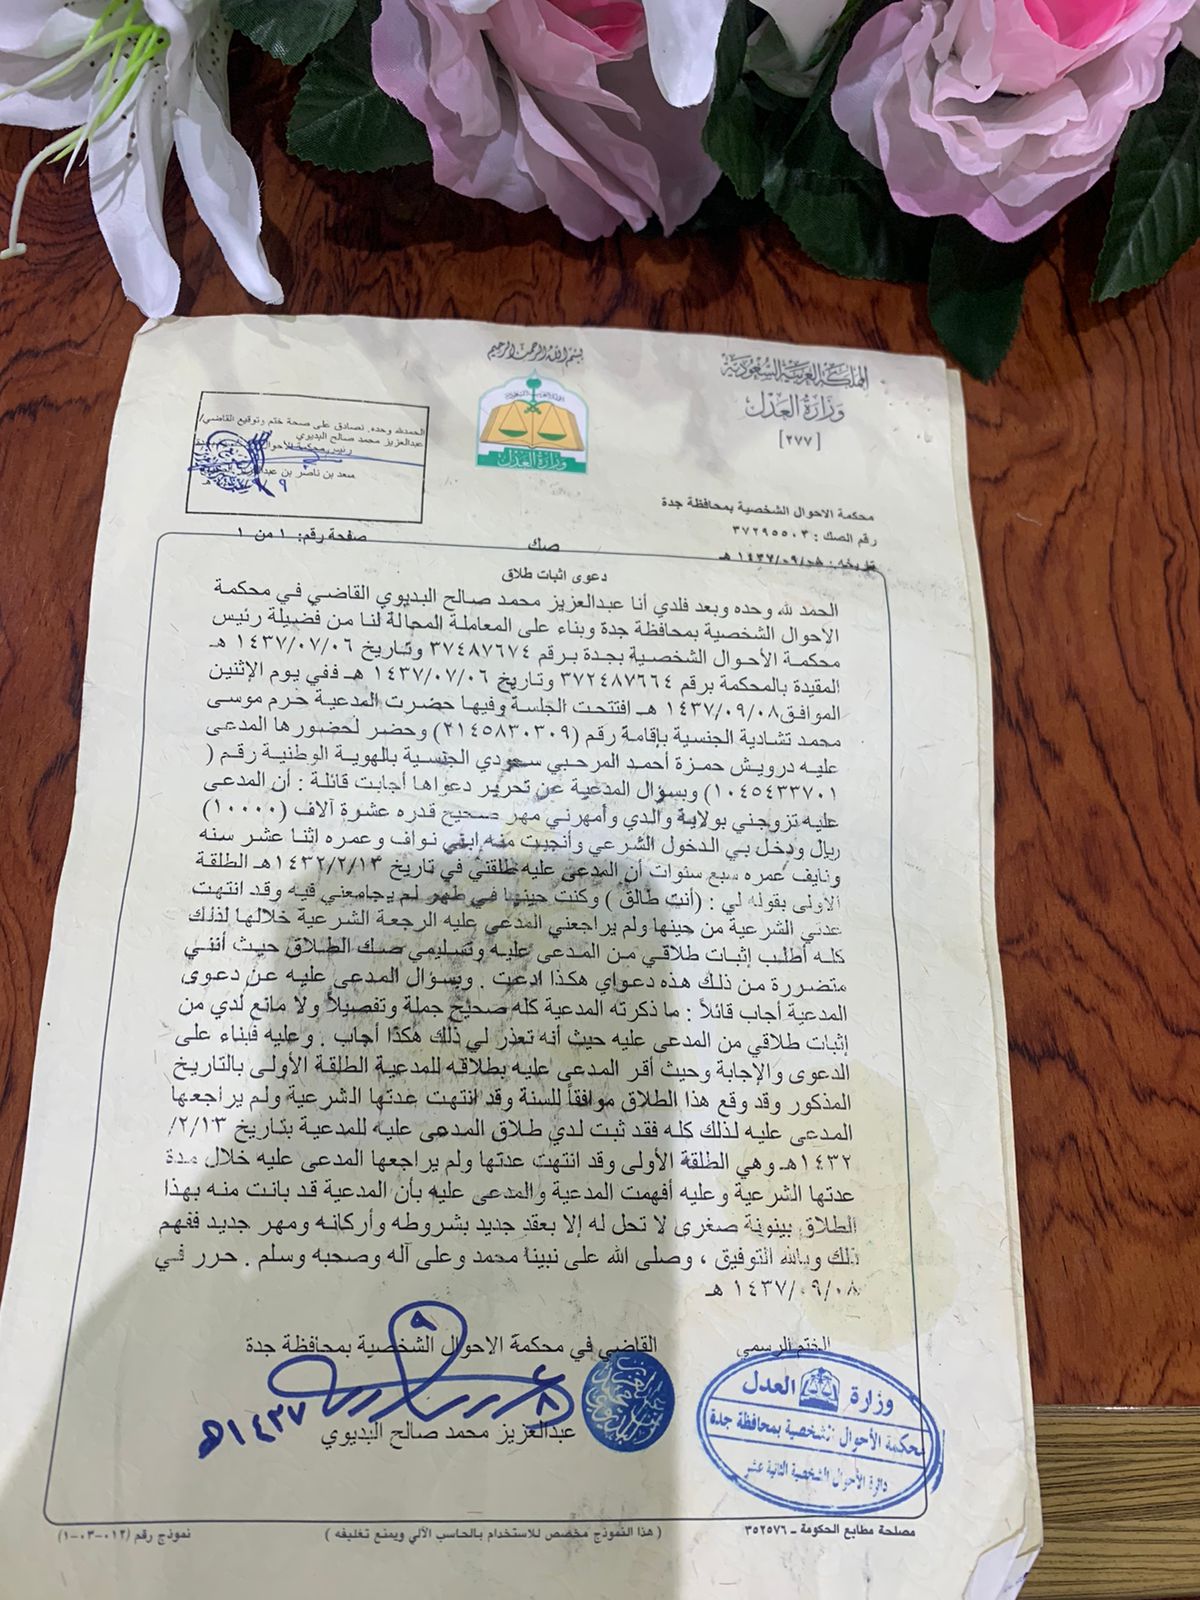 بسم الله الرحمن الرحيم
المملكة العربية السعودية
وزارة العدل
[٢٧٧]
وزارة العدل
الحمدلله وحده. نصادق على صحة ختم وتوقيع القاضي/
عبدالعزيز محمد صالح البديوي
رئيس محكمة الأحوال
سعد بن ناصر بن
محكمة الاحوال الشخصية بمحافظة جدة
رقم الصك : ٣٧٢٩٥٥٠٣
تاريخه : ١٤٣٧/٠٩/٠٨ هـ
صك
صفحة رقم: ١ من ١
دعوى اثبات طلاق
الحمد لله وحده وبعد فلدي أنا عبدالعزيز محمد صالح البديوي القاضي في محكمة
الأحوال الشخصية بمحافظة جدة وبناء على المعاملة المحالة لنا من فضيلة رئيس
محكمة الأحوال الشخصية بجدة برقم ٣٧٤٨٧٦٧٤ وتاريخ ١٤٣٧/٠٧/٠٦ هـ
المقيدة بالمحكمة برقم ٣٧٢٤٨٧٦٦٤ وتاريخ ١٤٣٧/٠٧/٠٦ هـ ففي يوم الإثنين
الموافق١٤٣٧/٠٩/٠٨ هـ افتتحت الجلسة وفيها حضرت المدعية حرم موسى
محمد تشادية الجنسية بإقامة رقم (٢١٤٥٨٣٠٣٠٩) وحضر لحضورها المدعى
عليه درويش حمزة أحمد المرحبي سعودي الجنسية بالهوية الوطنية رقم (
١٠٤٥٤٣٣٧٠١) وبسؤال المدعية عن تحرير دعواها أجابت قائلة : أن المدعى
عليه تزوجني بولاية والدي وأمهرني مهر صحيح قدره عشرة آلاف (١٠٠٠٠)
ريال ودخل بي الدخول الشرعي وأنجبت منه إبني نواف وعمره اثنا عشر سنه
ونايف عمره سبع سنوات أن المدعى عليه طلقني في تاريخ ١٤٣٢/٢/١٣هـ الطلقة
الأولى بقوله لي : (أنت طالق ) وكنت حينها في طهر لم يجامعني فيه وقد انتهت
عدتي الشرعية من حينها ولم يراجعني المدعى عليه الرجعة الشرعية خلالها لذلك
كله أطلب إثبات طلاقي من المدعى عليه وتسليمي صك الطلاق حيث أنني
متضررة من ذلك هذه دعواي هكذا ادعت . وبسؤال المدعى عليه عن دعوى
المدعية أجاب قائلاً : ما ذكرته المدعية كله صحيح جملة وتفصيلاً ولا مانع لدي من
إثبات طلاقي من المدعى عليه حيث أنه تعذر لي ذلك هكذا أجاب . وعليه فبناء على
الدعوى والإجابة وحيث أقر المدعى عليه بطلاقه للمدعية الطلقة الأولى بالتاريخ
المذكور وقد وقع هذا الطلاق موافقاً للسنة وقد انتهت عدتها الشرعية ولم يراجعها
المدعى عليه لذلك كله فقد ثبت لدي طلاق المدعى عليه للمدعية بتاريخ ٢/١٣/
١٤٣٢هـ وهي الطلقة الأولى وقد انتهت عدتها ولم يراجعها المدعى عليه خلال مدة
عدتها الشرعية وعليه أفهمت المدعية والمدعى عليه بأن المدعية قد بانت منه بهذا
الطلاق بينونة صغرى لا تحل له إلا بعقد جديد بشروطه وأركانه ومهر جديد ففهم
ذلك وبالله التوفيق ، وصلى الله على نبينا محمد وعلى آله وصحبه وسلم . حرر في
١٤٣٧/٠٩/٠٨ هـ
الختم الرسمي
القاضي في محكمة الاحوال الشخصية بمحافظة جدة
٩
١٤٣٧هـ
عبدالعزيز محمد صالح البديوي
وزارة العدل
محكمة الأحوال الشخصية بمحافظة جدة
دائرة الأحوال الشخصية الثانية عشر
مصلحة مطابع الحكومة ـ ٣٥٢٥٧٦
( هذا النموذج مخصص للاستخدام بالحاسب الآلي ويمنع تغليفه )
نموذج رقم (١٢-٠٣-٠١)